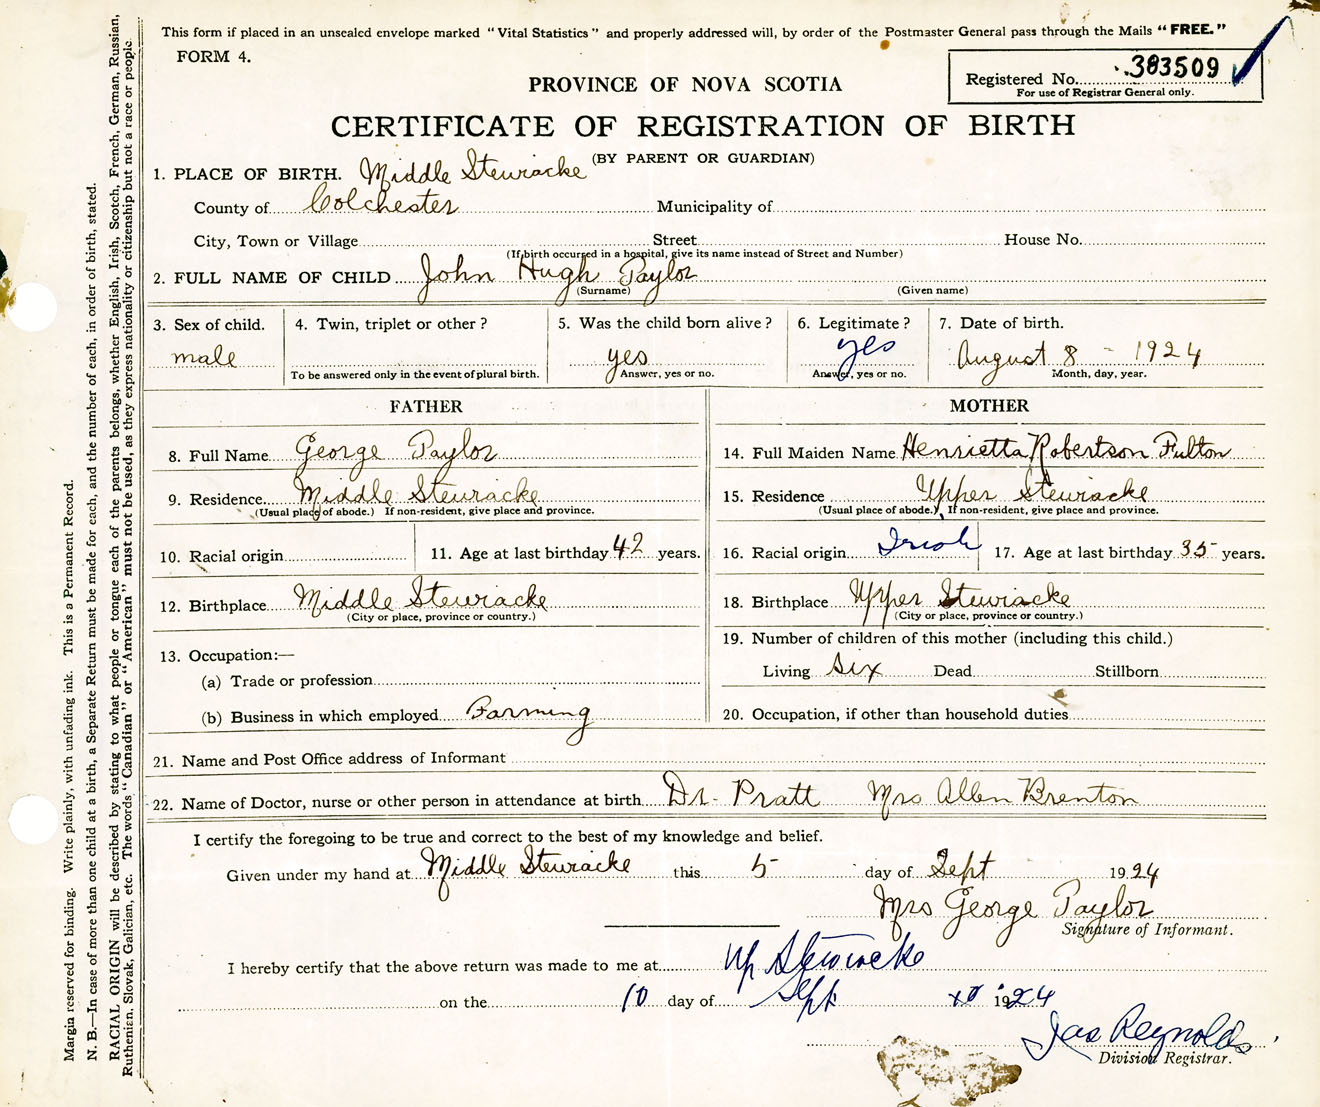 This form if placed in an unsealed envelope marked "Vital Statistics" and properly addressed will, by order of the Postmaster General pass through the Mails "FREE."
FORM 4.
Registered No. 383509
For use of Registrar General only.
PROVINCE OF NOVA SCOTIA
CERTIFICATE OF REGISTRATION OF BIRTH
(BY PARENT OR GUARDIAN)
1. PLACE OF BIRTH. Middle Stewiacke
County of Colchester Municipality of
City, Town or Village Street House No.
(If birth occurred in a hospital, give its name instead of Street and Number)
2. FULL NAME OF CHILD John Hugh Taylor
(Surname) (Given name)
3. Sex of child. 4. Twin, triplet or other? 5. Was the child born alive? 6. Legitimate? 7. Date of birth.
male yes yes August 8 - 1924
To be answered only in the event of plural birth. Answer, yes or no. Answer, yes or no. Month, day, year.
FATHER
8. Full Name George Taylor
9. Residence Middle Stewiacke
(Usual place of abode.) If non-resident, give place and province.
10. Racial origin 11. Age at last birthday 42 years.
12. Birthplace Middle Stewiacke
(City or place, province or country.)
13. Occupation:—
(a) Trade or profession
(b) Business in which employed Farming
MOTHER
14. Full Maiden Name Henrietta Robertson Fulton
15. Residence Upper Stewiacke
(Usual place of abode.) If non-resident, give place and province.
16. Racial origin Irish 17. Age at last birthday 35 years.
18. Birthplace Upper Stewiacke
(City or place, province or country.)
19. Number of children of this mother (including this child.)
Living Six Dead Stillborn
20. Occupation, if other than household duties
21. Name and Post Office address of Informant
22. Name of Doctor, nurse or other person in attendance at birth Dr. Pratt Mrs Allen Brenton
I certify the foregoing to be true and correct to the best of my knowledge and belief.
Given under my hand at Middle Stewiacke this 5 day of Sept 1924
Mrs George Taylor
Signature of Informant.
I hereby certify that the above return was made to me at Up Stewiacke
on the 10 day of Sept 1924
Jas Reynolds
Division Registrar.
Margin reserved for binding. Write plainly, with unfading ink. This is a Permanent Record.
N. B.—In case of more than one child at a birth, a Separate Return must be made for each, and the number of each, in order of birth, stated.
RACIAL ORIGIN will be described by stating to what people or tongue each of the parents belongs, whether English, Irish, Scotch, French, German, Russian,
Ruthenian, Slovak, Galician, etc. The words "Canadian" or "American" must not be used, as they express nationality or citizenship but not a race or people.